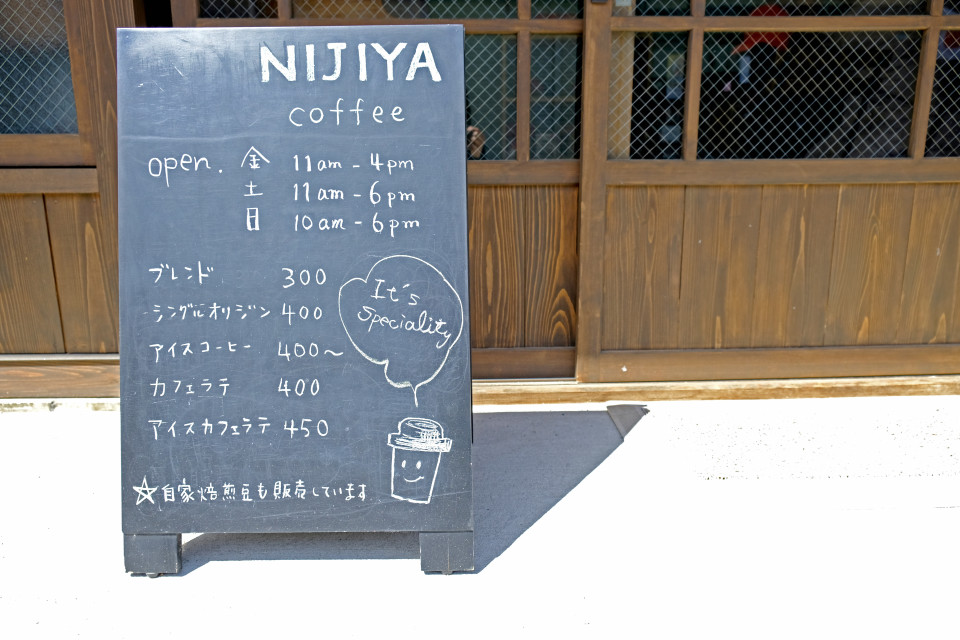 NIJIYA
coffee
open. 金 11am - 4pm
土 11am - 6pm
日 10am - 6pm
ブレンド 300
シングルオリジン 400
アイスコーヒー 400～
カフェラテ 400
アイスカフェラテ 450
It's
speciality
☆自家焙煎豆も販売しています